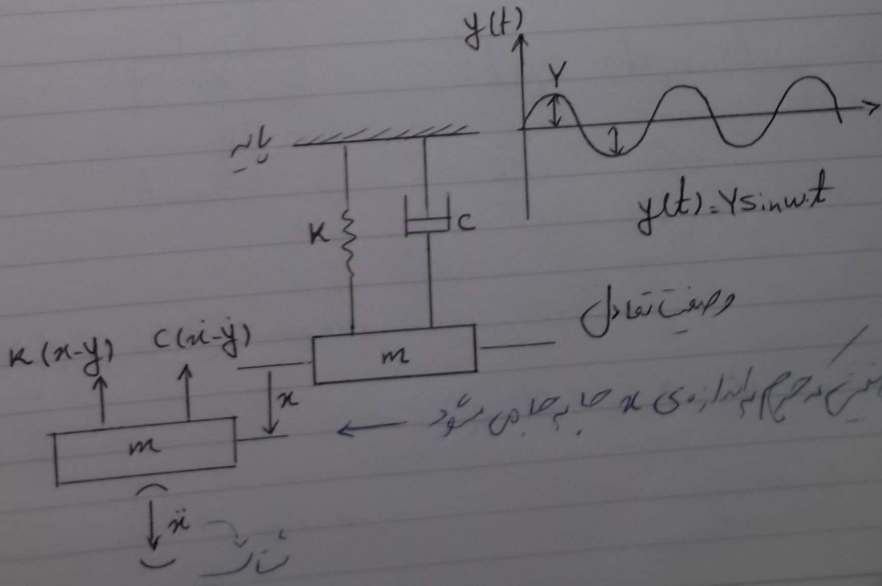 y(t)
Y
پایه
K
C
y(t)=Y sin ω.t
وضعیت تعادل
m
K(x-y)
C(ẋ-ẏ)
x
جرم به اندازه‌ی x جابه‌جا می‌شود
m
ẍ
شتاب